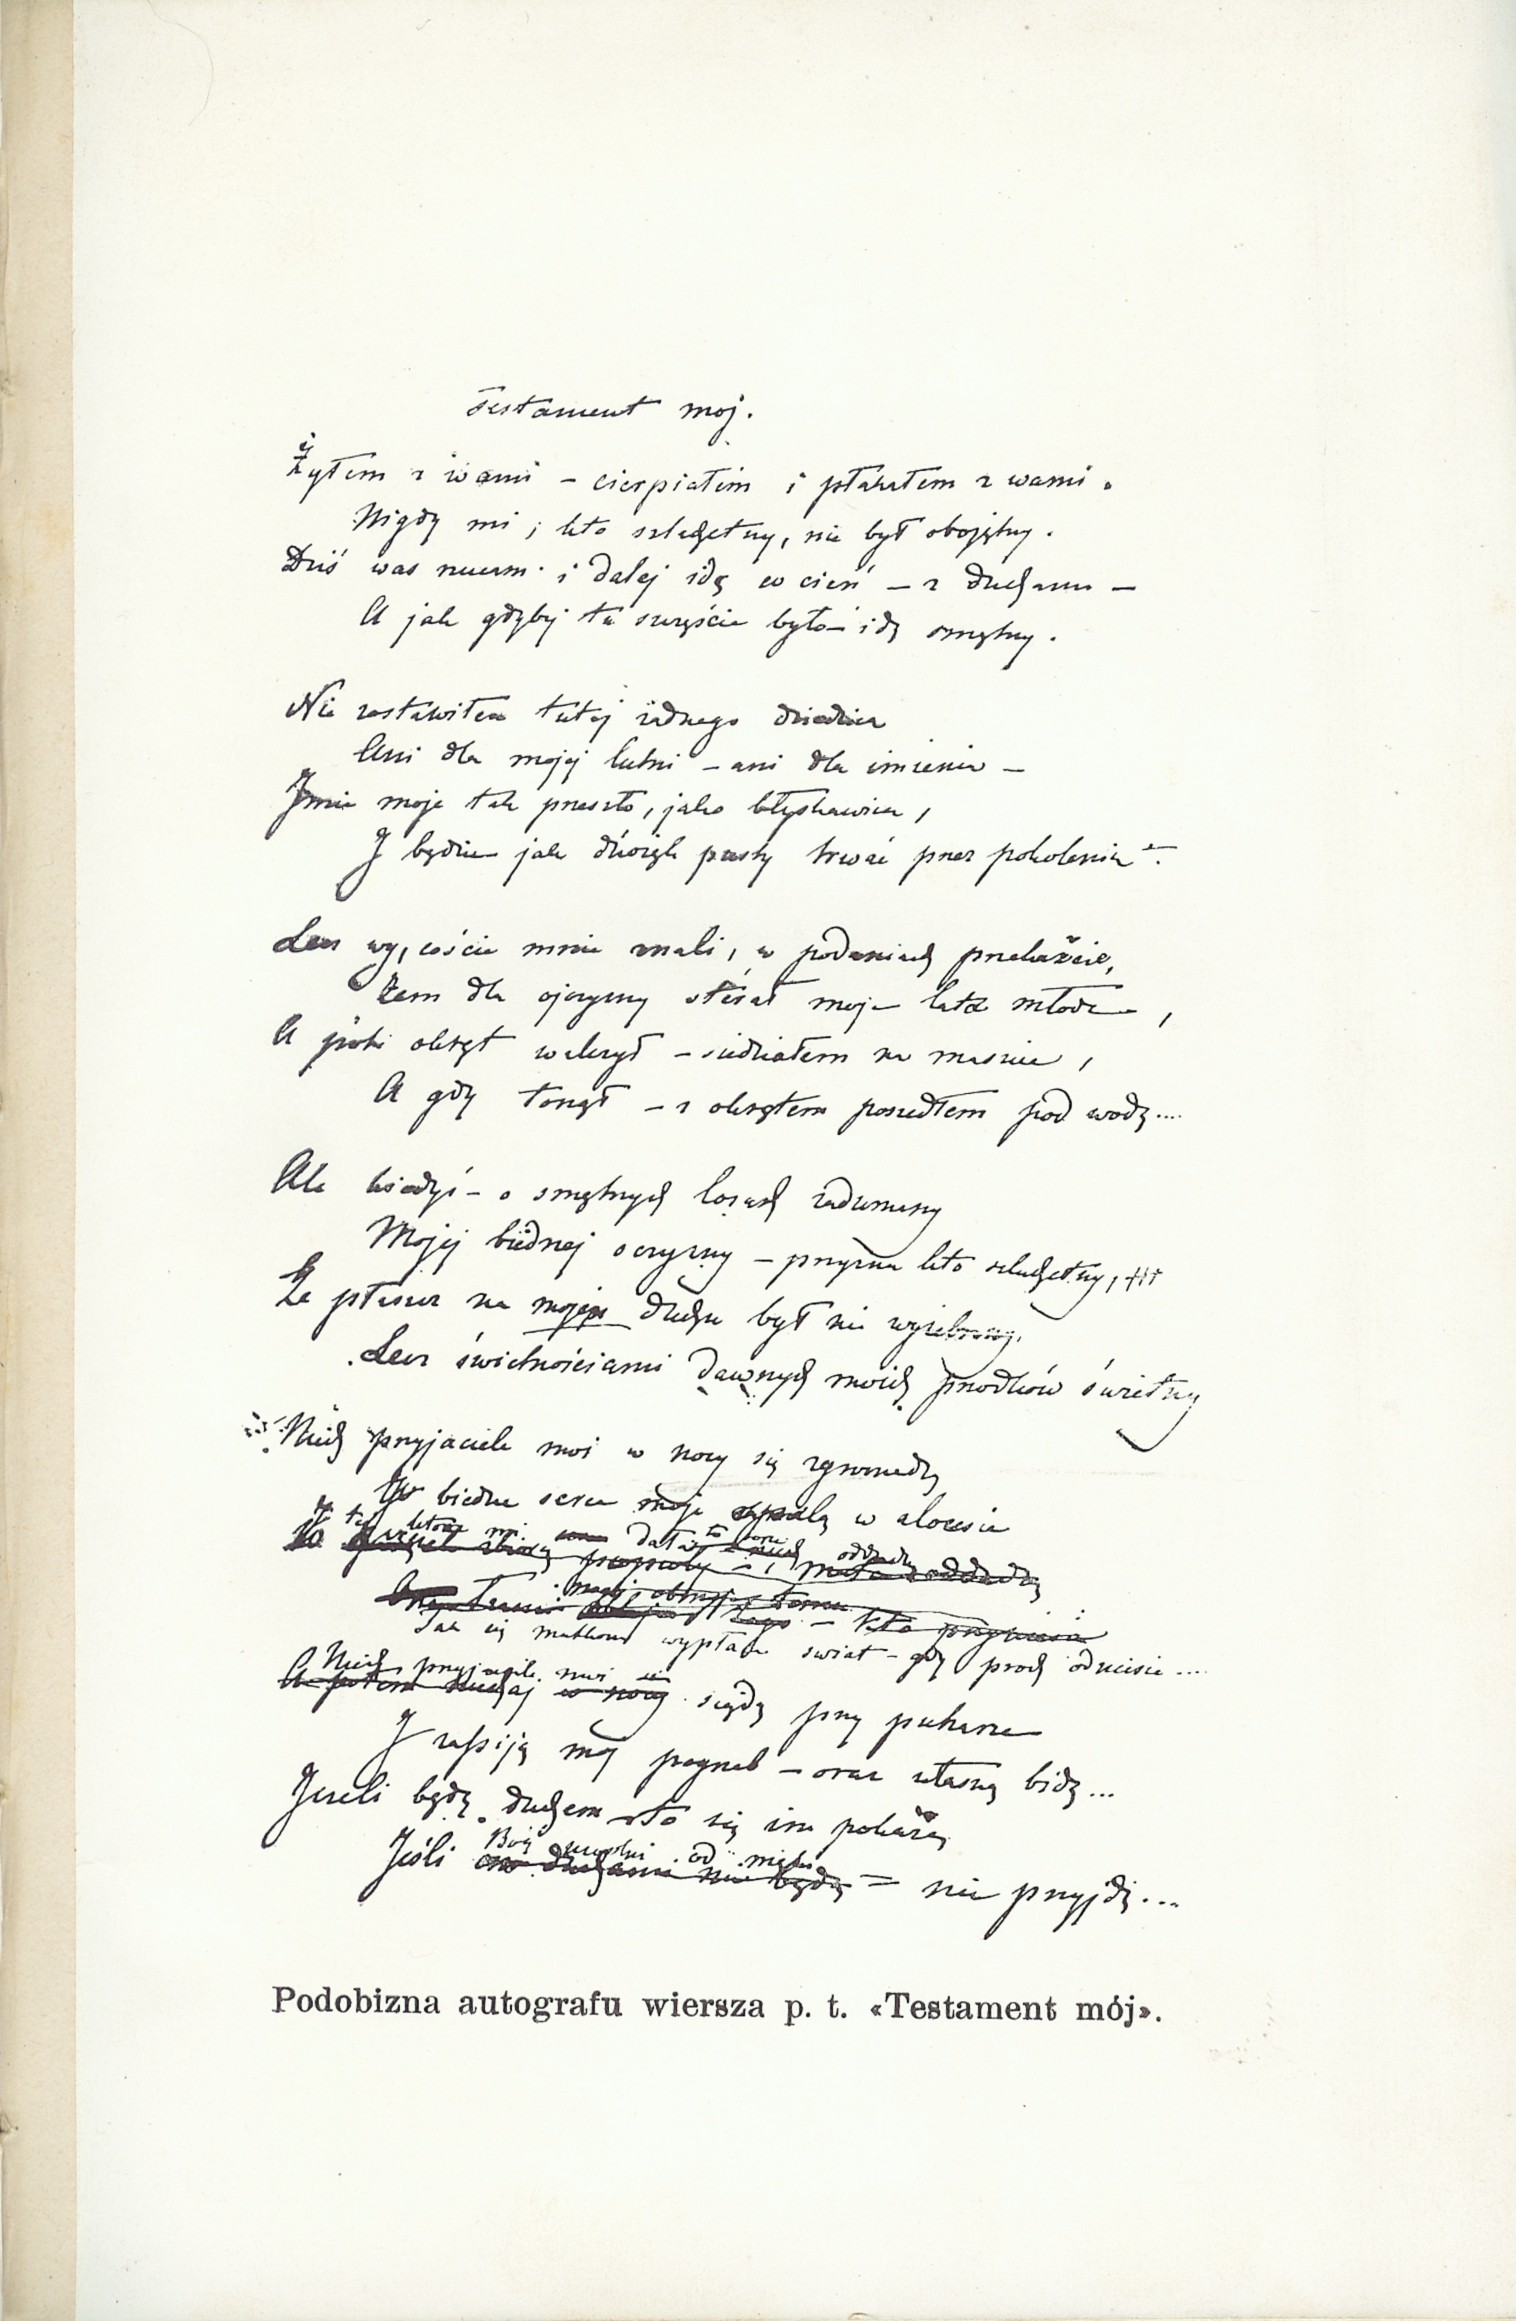 Testament moj.
Żyłem z wami – cierpiałem i płakałem z wami.
Nigdy mi, kto szlachetny, nie był obojętny.
Dziś was rzucam i dalej idę w cień – z duchami –
A jak gdyby tu szczęście było – idę smętny.
Nie zostawiłem tutaj żadnego dziedzica
Ani dla mojej lutni – ani dla imienia –
Imie moje tak przeszło, jako błyskawica,
I będzie jak dźwięk pusty trwać przez pokolenia.
Lecz wy, coście mnie znali, w podaniach przekażcie,
Żem dla ojczyzny sterał moje lata młode,
A póki okręt walczył – siedziałem na maszcie,
A gdy tonął – z okrętem poszedłem pod wodę....
Ale kiedyś – o smętnych losach zadumany
Mojej biédnej oczyzny – przyzna kto szlachetny,
Że płaszcz na mojém duchu był nie wyżebrany,
Lecz świetnościami dawnych moich przodków świetny
Niech przyjaciele moi w nocy się zgromadzą
I biedne serce moje spalą w aloesie
I tej która mi dała to serce oddadzą
Tak się matkom wypłaca świat – gdy proch odniesie....
Niech przyjaciele moi siędą przy pucharze
I zapiją mój pogrzeb – oraz własną bidę...
Jeżeli będę duchem – to się im pokażę,
Jeśli Bóg uwolni od męki = nie przyjdę...
Podobizna autografu wiersza p. t. «Testament mój».